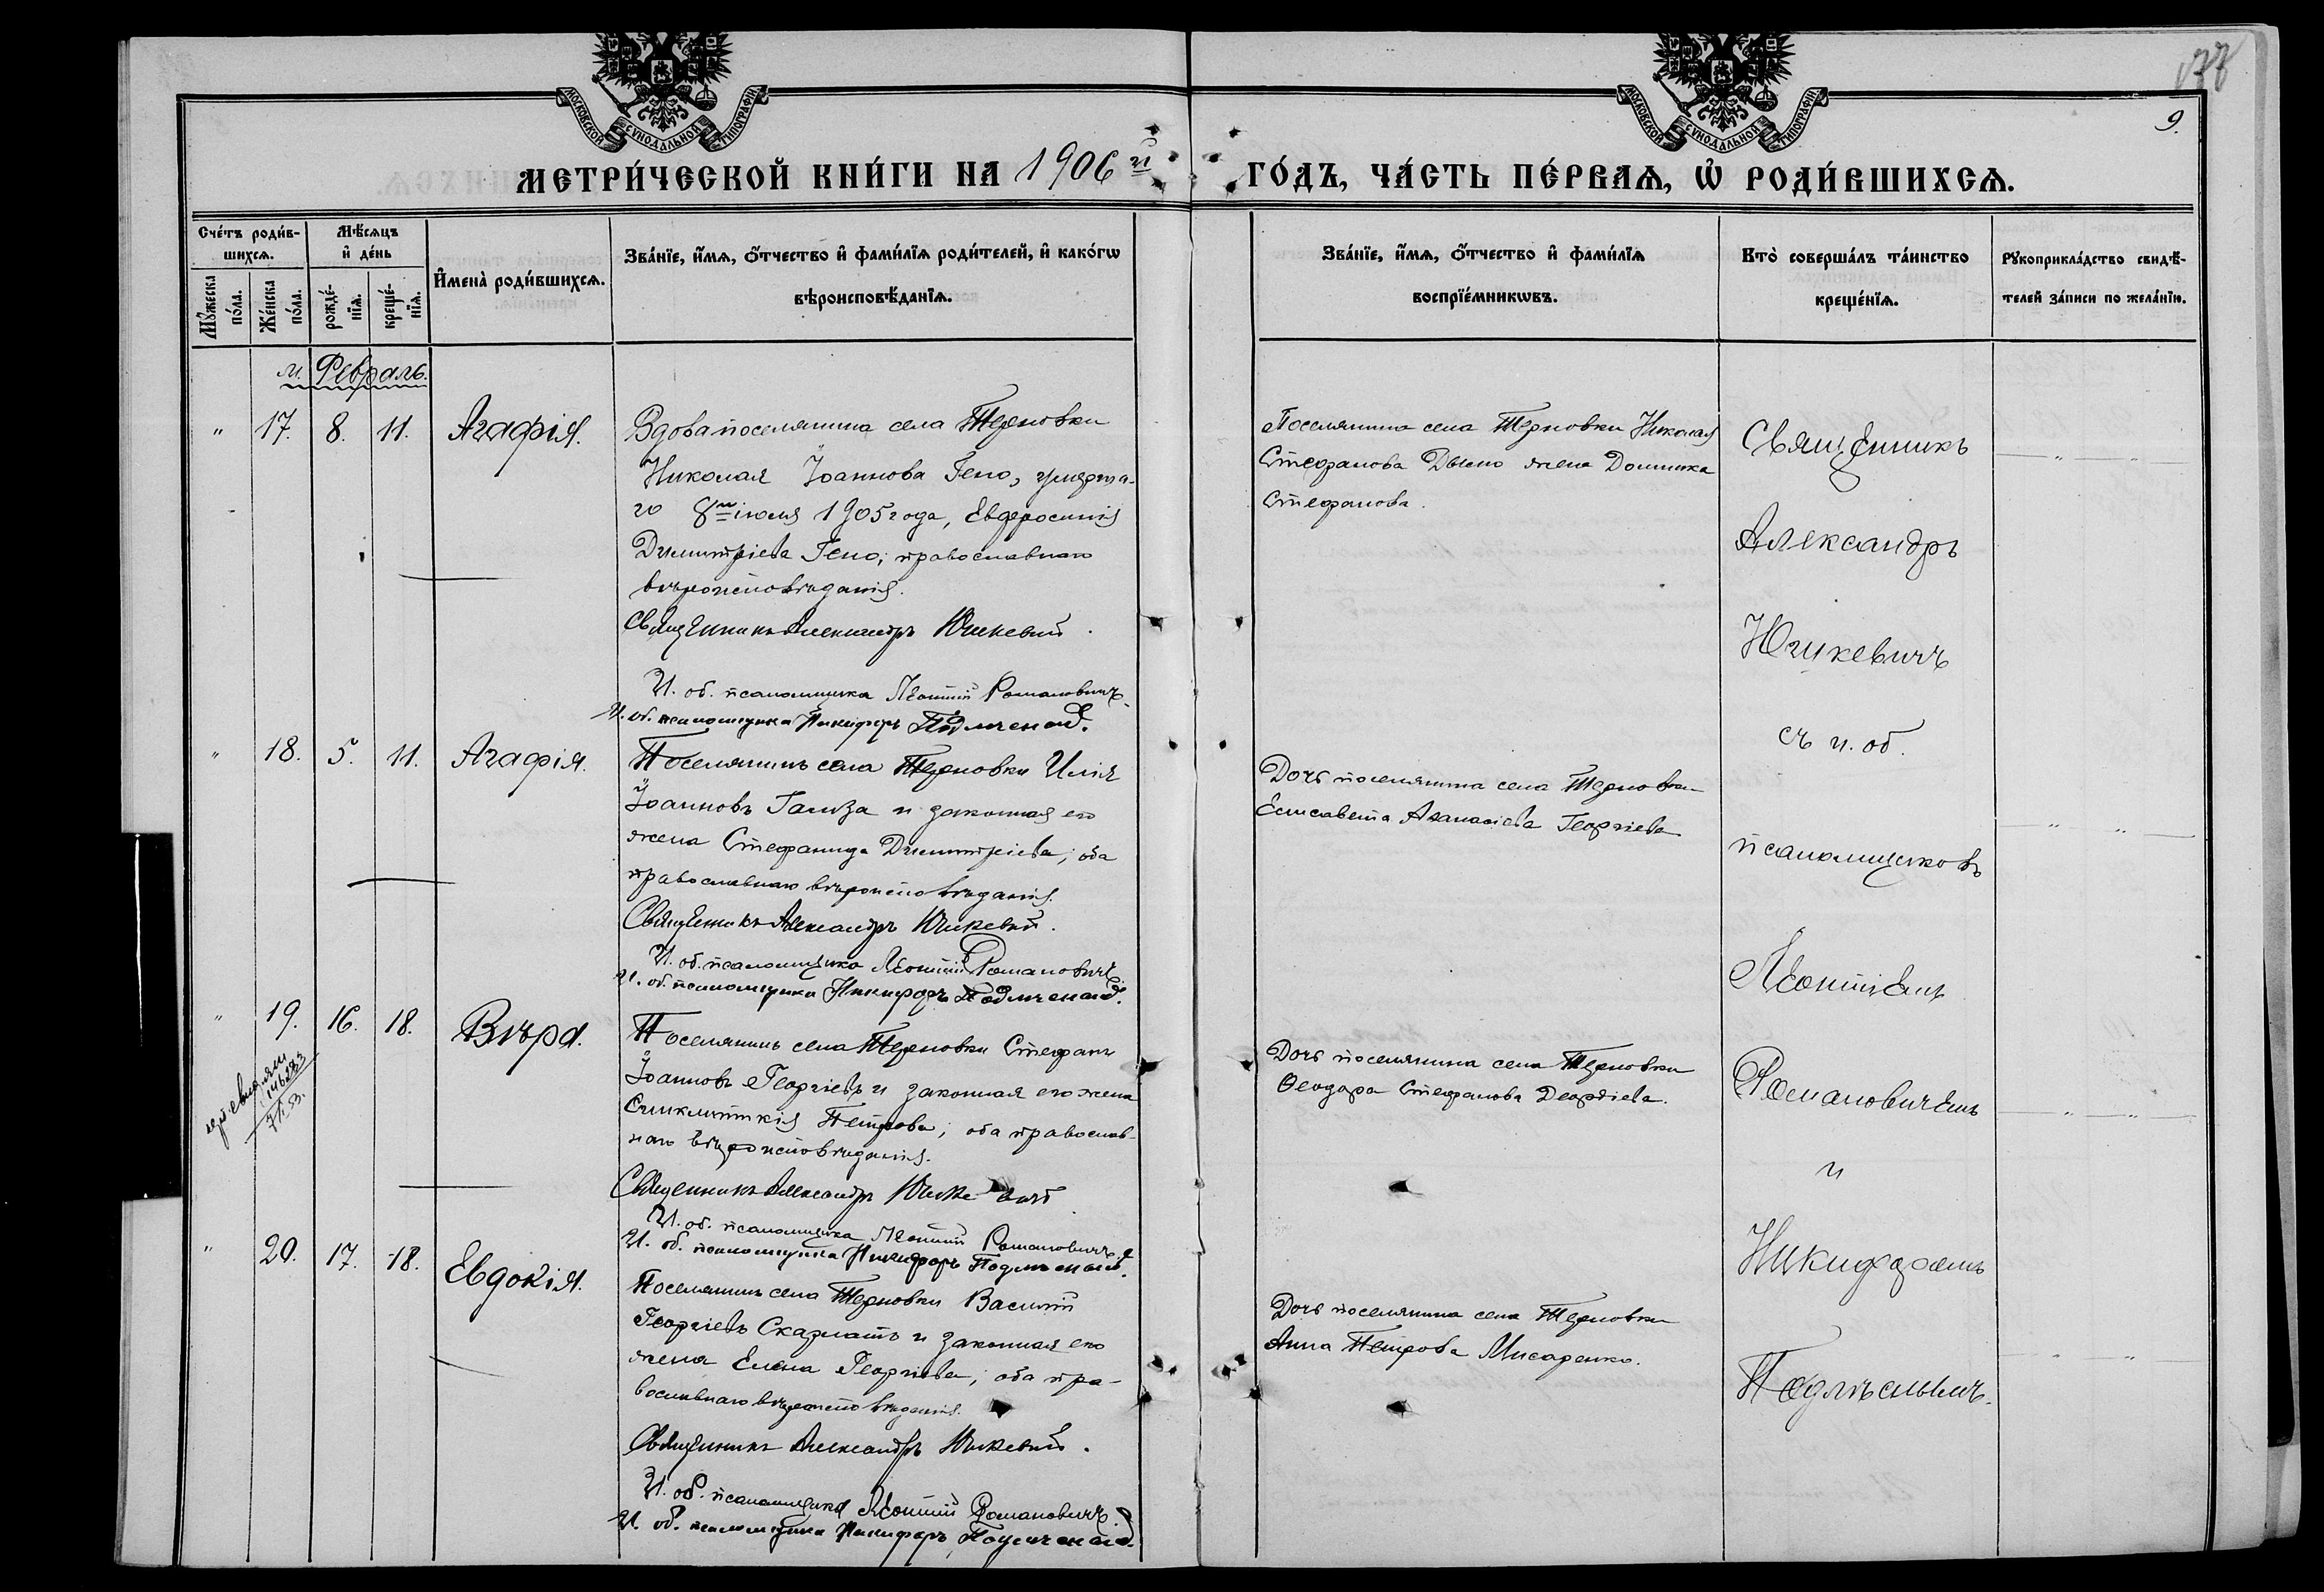 МОСКОВСКОЙ СѴНОДАЛЬНОЙ ТИПОГРАФІИ
МОСКОВСКОЙ СѴНОДАЛЬНОЙ ТИПОГРАФІИ
9.
МЕТРИ́ЧЕСКОЙ КНИ́ГИ НА 1906 й ГО́ДЪ, ЧА́СТЬ ПЕ́РВАѦ, Ѡ РОДИ́ВШИХСѦ.
Сче́тъ роди́в-
шихсѧ.
Мꙋ́жеска
по́ла.
Же́нска
по́ла.
Мѣ́сѧцъ
и҆ де́нь
рожде́-
нїѧ.
креще́-
нїѧ.
И҆мена̀ роди́вшихсѧ.
Зва́нїе, и҆́мѧ, ѻ҆́тчество и҆ фами́лїѧ роди́телей, и҆ како́гѡ
вѣроисповѣ́данїѧ.
Зва́нїе, и҆́мѧ, ѻ҆́тчество и҆ фами́лїѧ
воспрїе́мникѡвъ.
Кто̀ соверша́лъ та́инство
креще́нїѧ.
Рꙋкоприкла́дство свидѣ́-
телей за́писи по жела́нїю.
м. Февраль.
" 17. 8. 11. Агафія.
Вдова поселянина села Терновки
Николая Іоаннова Гено, умерша-
го 8го іюля 1905 года, Евфросинія
Димитріева Гено, православнаго
вѣроисповѣданія.
Священникъ Александръ Юшкевич.
И. об. псаломщика Леонтій Романовичъ.
И. об. псаломщика Никифоръ Подлѣсный.
Поселянина села Терновки Николая
Стефанова Дымо жена Домника
Стефанова.
" 18. 5. 11. Агафія.
Поселянинъ села Терновки Илія
Іоанновъ Гамза и законная его
жена Стефанида Димитріева; оба
православнаго вѣроисповѣданія.
Священникъ Александръ Юшкевич.
И. об. псаломщика Леонтій Романовичъ.
И. об. псаломщика Никифоръ Подлѣсный.
Дочь поселянина села Терновки
Елисавета Аѳанасіева Георгіева
" 19. 16. 18. Вѣра.
71.53.
Поселянинъ села Терновки Стефанъ
Іоанновъ Георгіевъ и законная его жена
Синклитикія Петрова; оба православ-
наго вѣроисповѣданія.
Священникъ Александръ Юшкевич
И. об. псаломщика Леонтій Романовичъ.
И. об. псаломщика Никифоръ Подлѣсный.
Дочь поселянина села Терновки
Ѳеодора Стефанова Георгіева.
" 20. 17. 18. Евдокія.
Поселянинъ села Терновки Василій
Георгіевъ Скарлатъ и законная его
жена Елена Георгіева; оба пра-
вославнаго вѣроисповѣданія.
Священникъ Александръ Юшкевич.
И. об. псаломщика Леонтій Романовичъ.
И. об. псаломщика Никифоръ Подлѣсный.
Дочь поселянина села Терновки
Анна Петрова Писаренко.
Священникъ
Александръ
Юшкевичъ
съ и. об.
псаломщиковъ
Леонтіемъ
Романовичемъ
и
Никифоромъ
Подлѣснымъ.